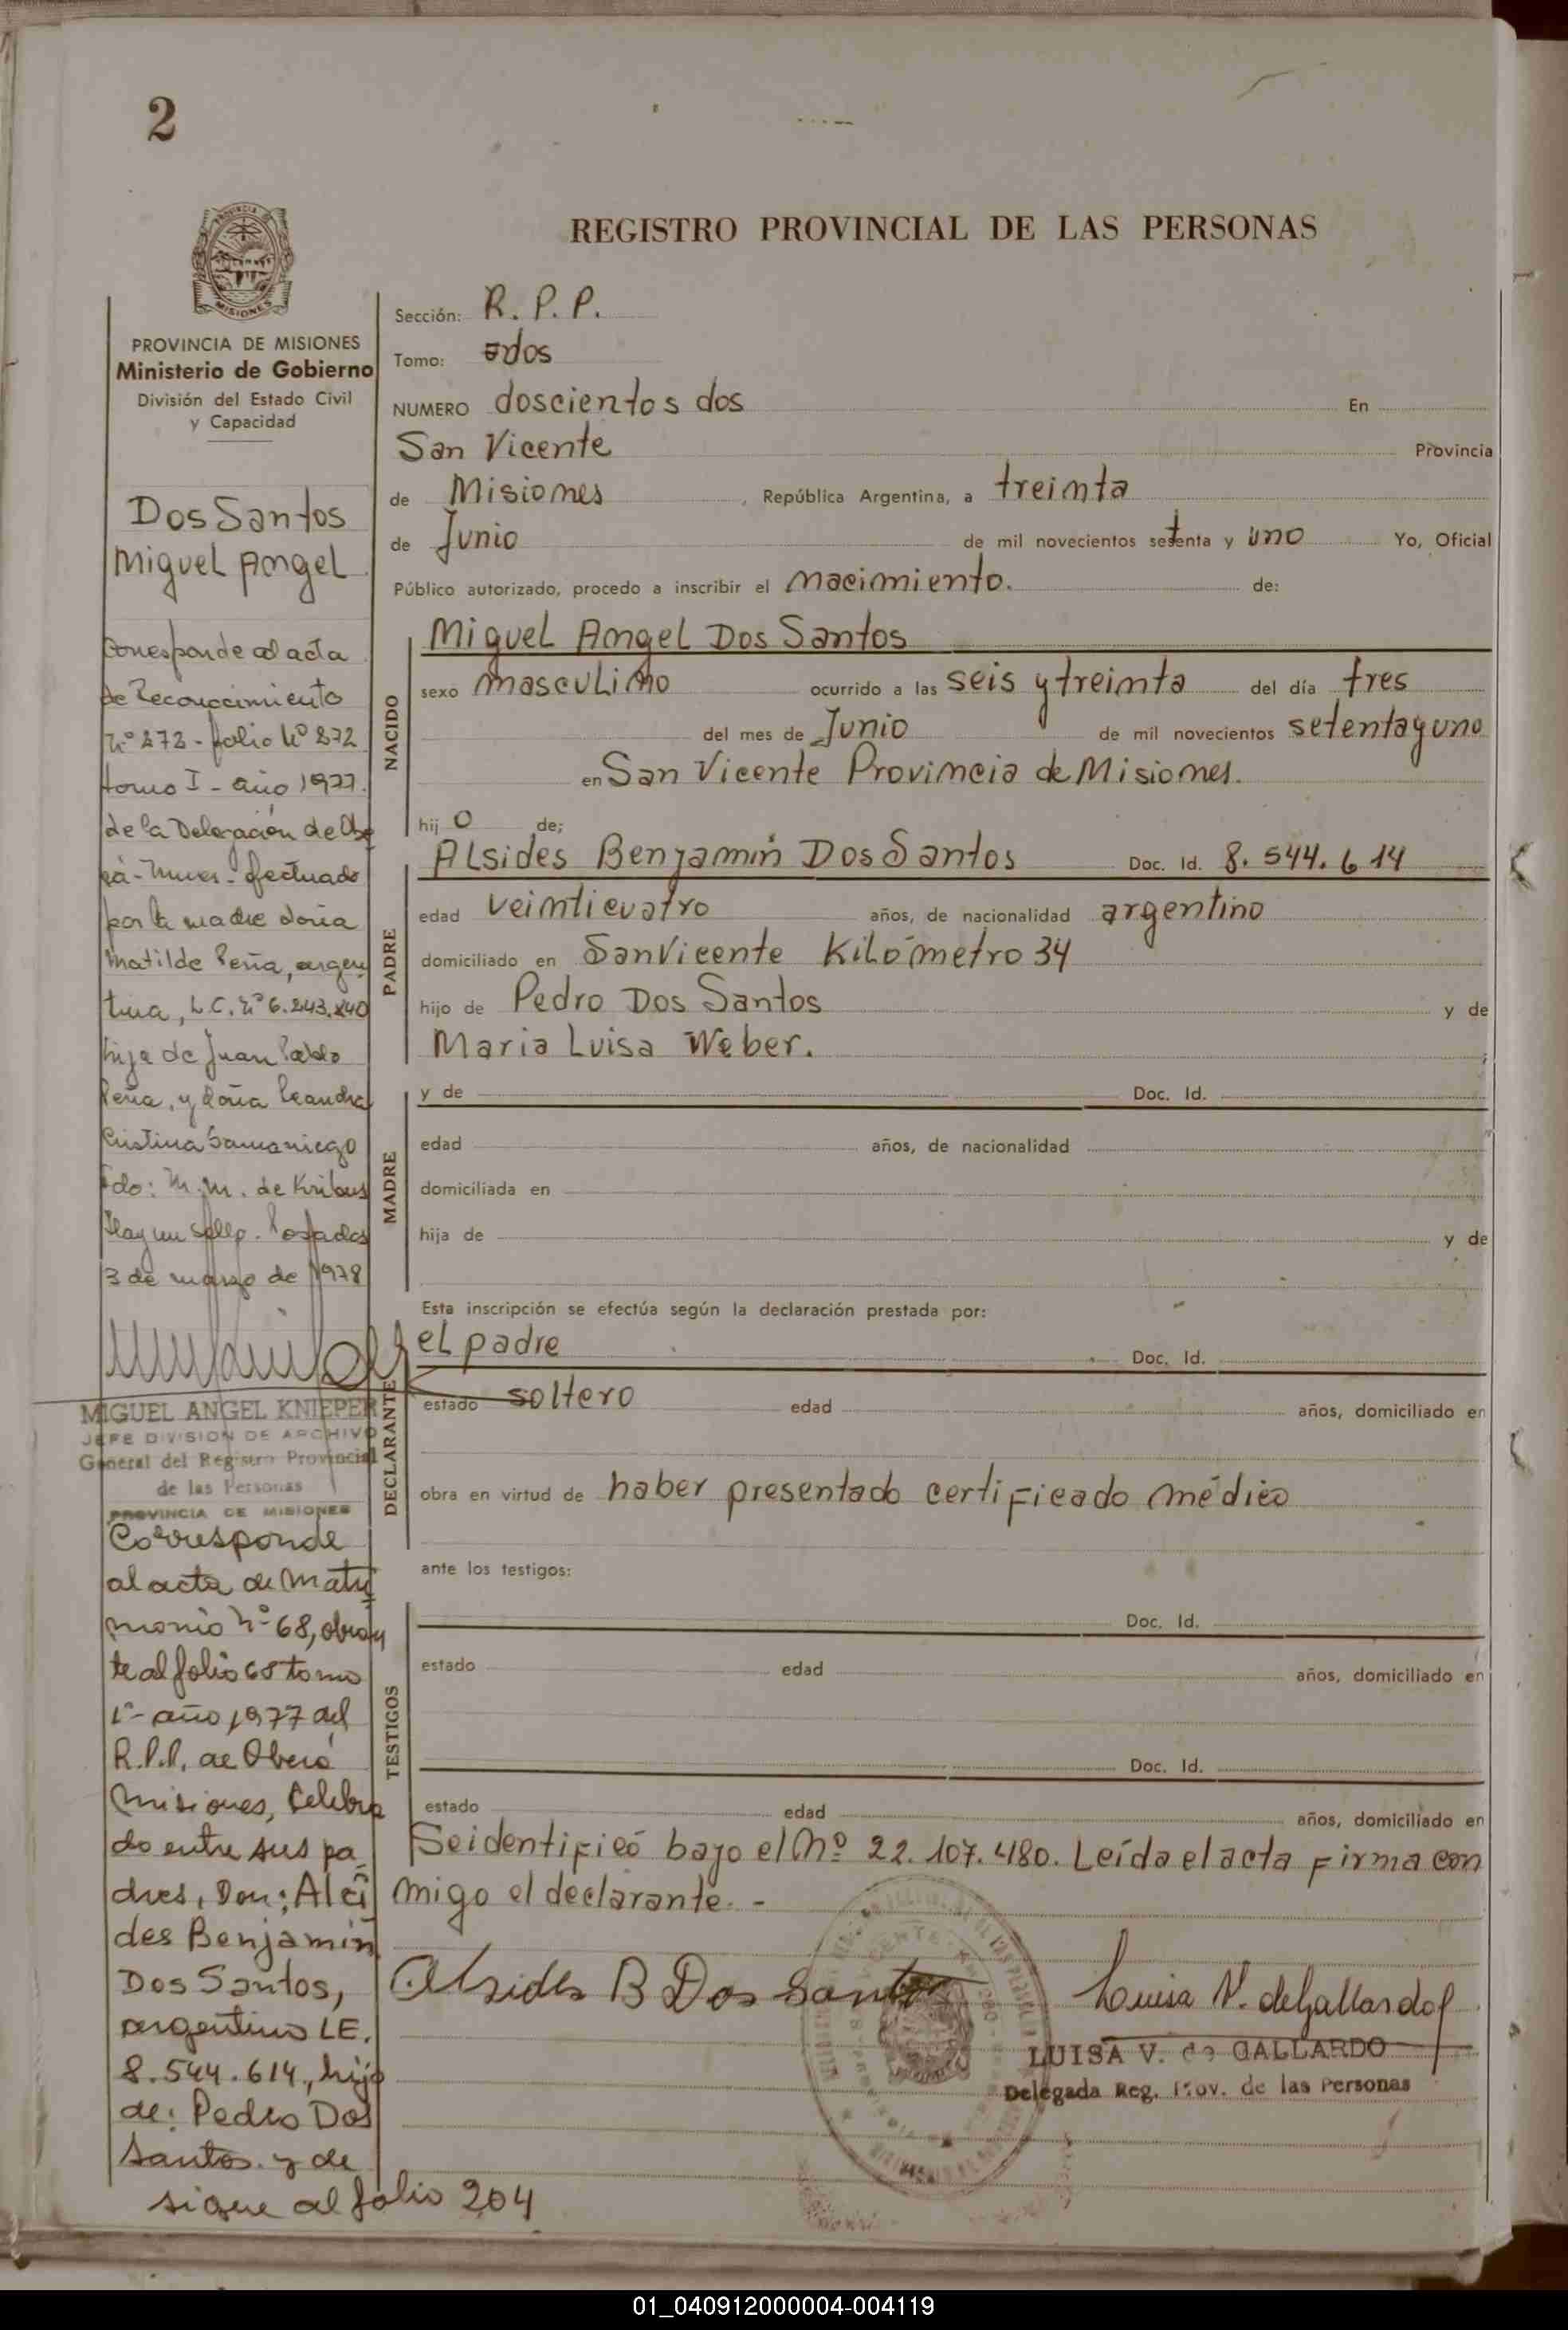 2
REGISTRO PROVINCIAL DE LAS PERSONAS
PROVINCIA DE MISIONES
Ministerio de Gobierno
División del Estado Civil
y Capacidad
Dos Santos
Miguel Angel
Corresponde al acta
de Reconocimiento
folio
tomo I - año 1977.
de la Delegación de Obe
rá - Mnes. efectuado
por la madre doña
Matilde Peña, argen
tina, L.C. Nº 6.243.840
hija de Juan Pablo
Peña, y doña Leandra
Cristina Samaniego
Fdo: M. M. de Kribus
Hay un sello. Posadas
3 de marzo de 1978
MIGUEL ANGEL KNIEPER
JEFE DIVISION DE ARCHIVO
General del Registro Provincial
de las Personas
PROVINCIA DE MISIONES
Corresponde
al acta de Matri
monio Nº 68, obran
te al folio 68 tomo
1º - año 1977 del
R.P.P. de Oberá
Misiones, Celebra
do entre sus pa
dres, Don: Alci
des Benjamín
Dos Santos,
argentino LE.
8.544.614., hijo
de: Pedro Dos
Santos y de
sigue al folio 204
Sección: R. P. P.
Tomo: dos
NUMERO doscientos dos En
San Vicente Provincia
de Misiones, República Argentina, a treinta
de Junio de mil novecientos setenta y uno Yo, Oficial
Público autorizado, procedo a inscribir el nacimiento. de:
NACIDO
Miguel Angel Dos Santos
sexo masculino ocurrido a las seis y treinta del día tres
del mes de Junio de mil novecientos setenta y uno
en San Vicente Provincia de Misiones.
hij o de;
PADRE
Alsides Benjamín Dos Santos Doc. Id. 8.544.614
edad veinticuatro años, de nacionalidad argentino
domiciliado en San Vicente Kilómetro 34
hijo de Pedro Dos Santos y de
Maria Luisa Weber. ;
MADRE
y de Doc. Id.
edad años, de nacionalidad
domiciliada en
hija de y de
Esta inscripción se efectúa según la declaración prestada por:
DECLARANTE
el padre Doc. Id.
estado soltero edad años, domiciliado en
obra en virtud de haber presentado certificado médico
ante los testigos:
TESTIGOS
Doc. Id.
estado edad años, domiciliado en
Doc. Id.
estado edad años, domiciliado en
Se identificó bajo el Nº 22.107.480. Leída el acta firma con
migo el declarante. -
Alsides B Dos Santos
Luisa V. de Gallardo
LUISA V. de GALLARDO
Delegada Reg. Prov. de las Personas
01_040912000004-004119